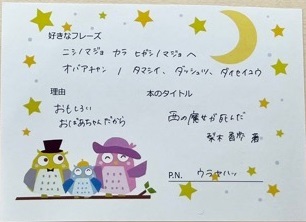 好きなフレーズ
ニシノマジョ カラ ヒガシノマジョ ヘ
オバアチャン ノ タマシイ、ダッシュツ、ダイセイコウ
理由
おもしろい
おばあちゃんだから
本のタイトル
西の魔女が死んだ
梨木香歩 著
P.N. ウラヤハッ